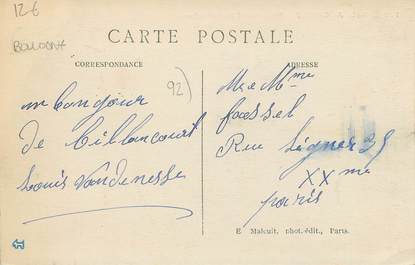 12€
BOULOGNE
CARTE POSTALE
CORRESPONDANCE
ADRESSE
92)
un bonjour
de Billancourt
Louis Vandenesse
M et Mme
Rue Ligner 35
XXme
paris
E. Malcuit, phot.-édit., Paris.